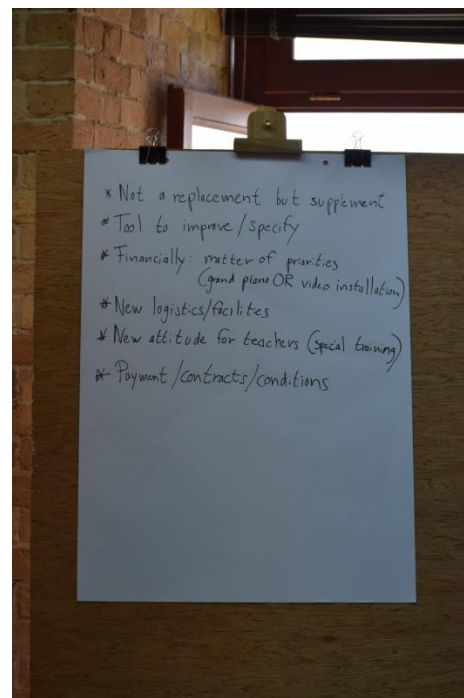 * Not a replacement but supplement
* Tool to improve/specify
* Financially: matter of priorities
(grand piano OR video installation)
* New logistics/facilities
* New attitude for teachers (special training)
* Payment/contracts/conditions